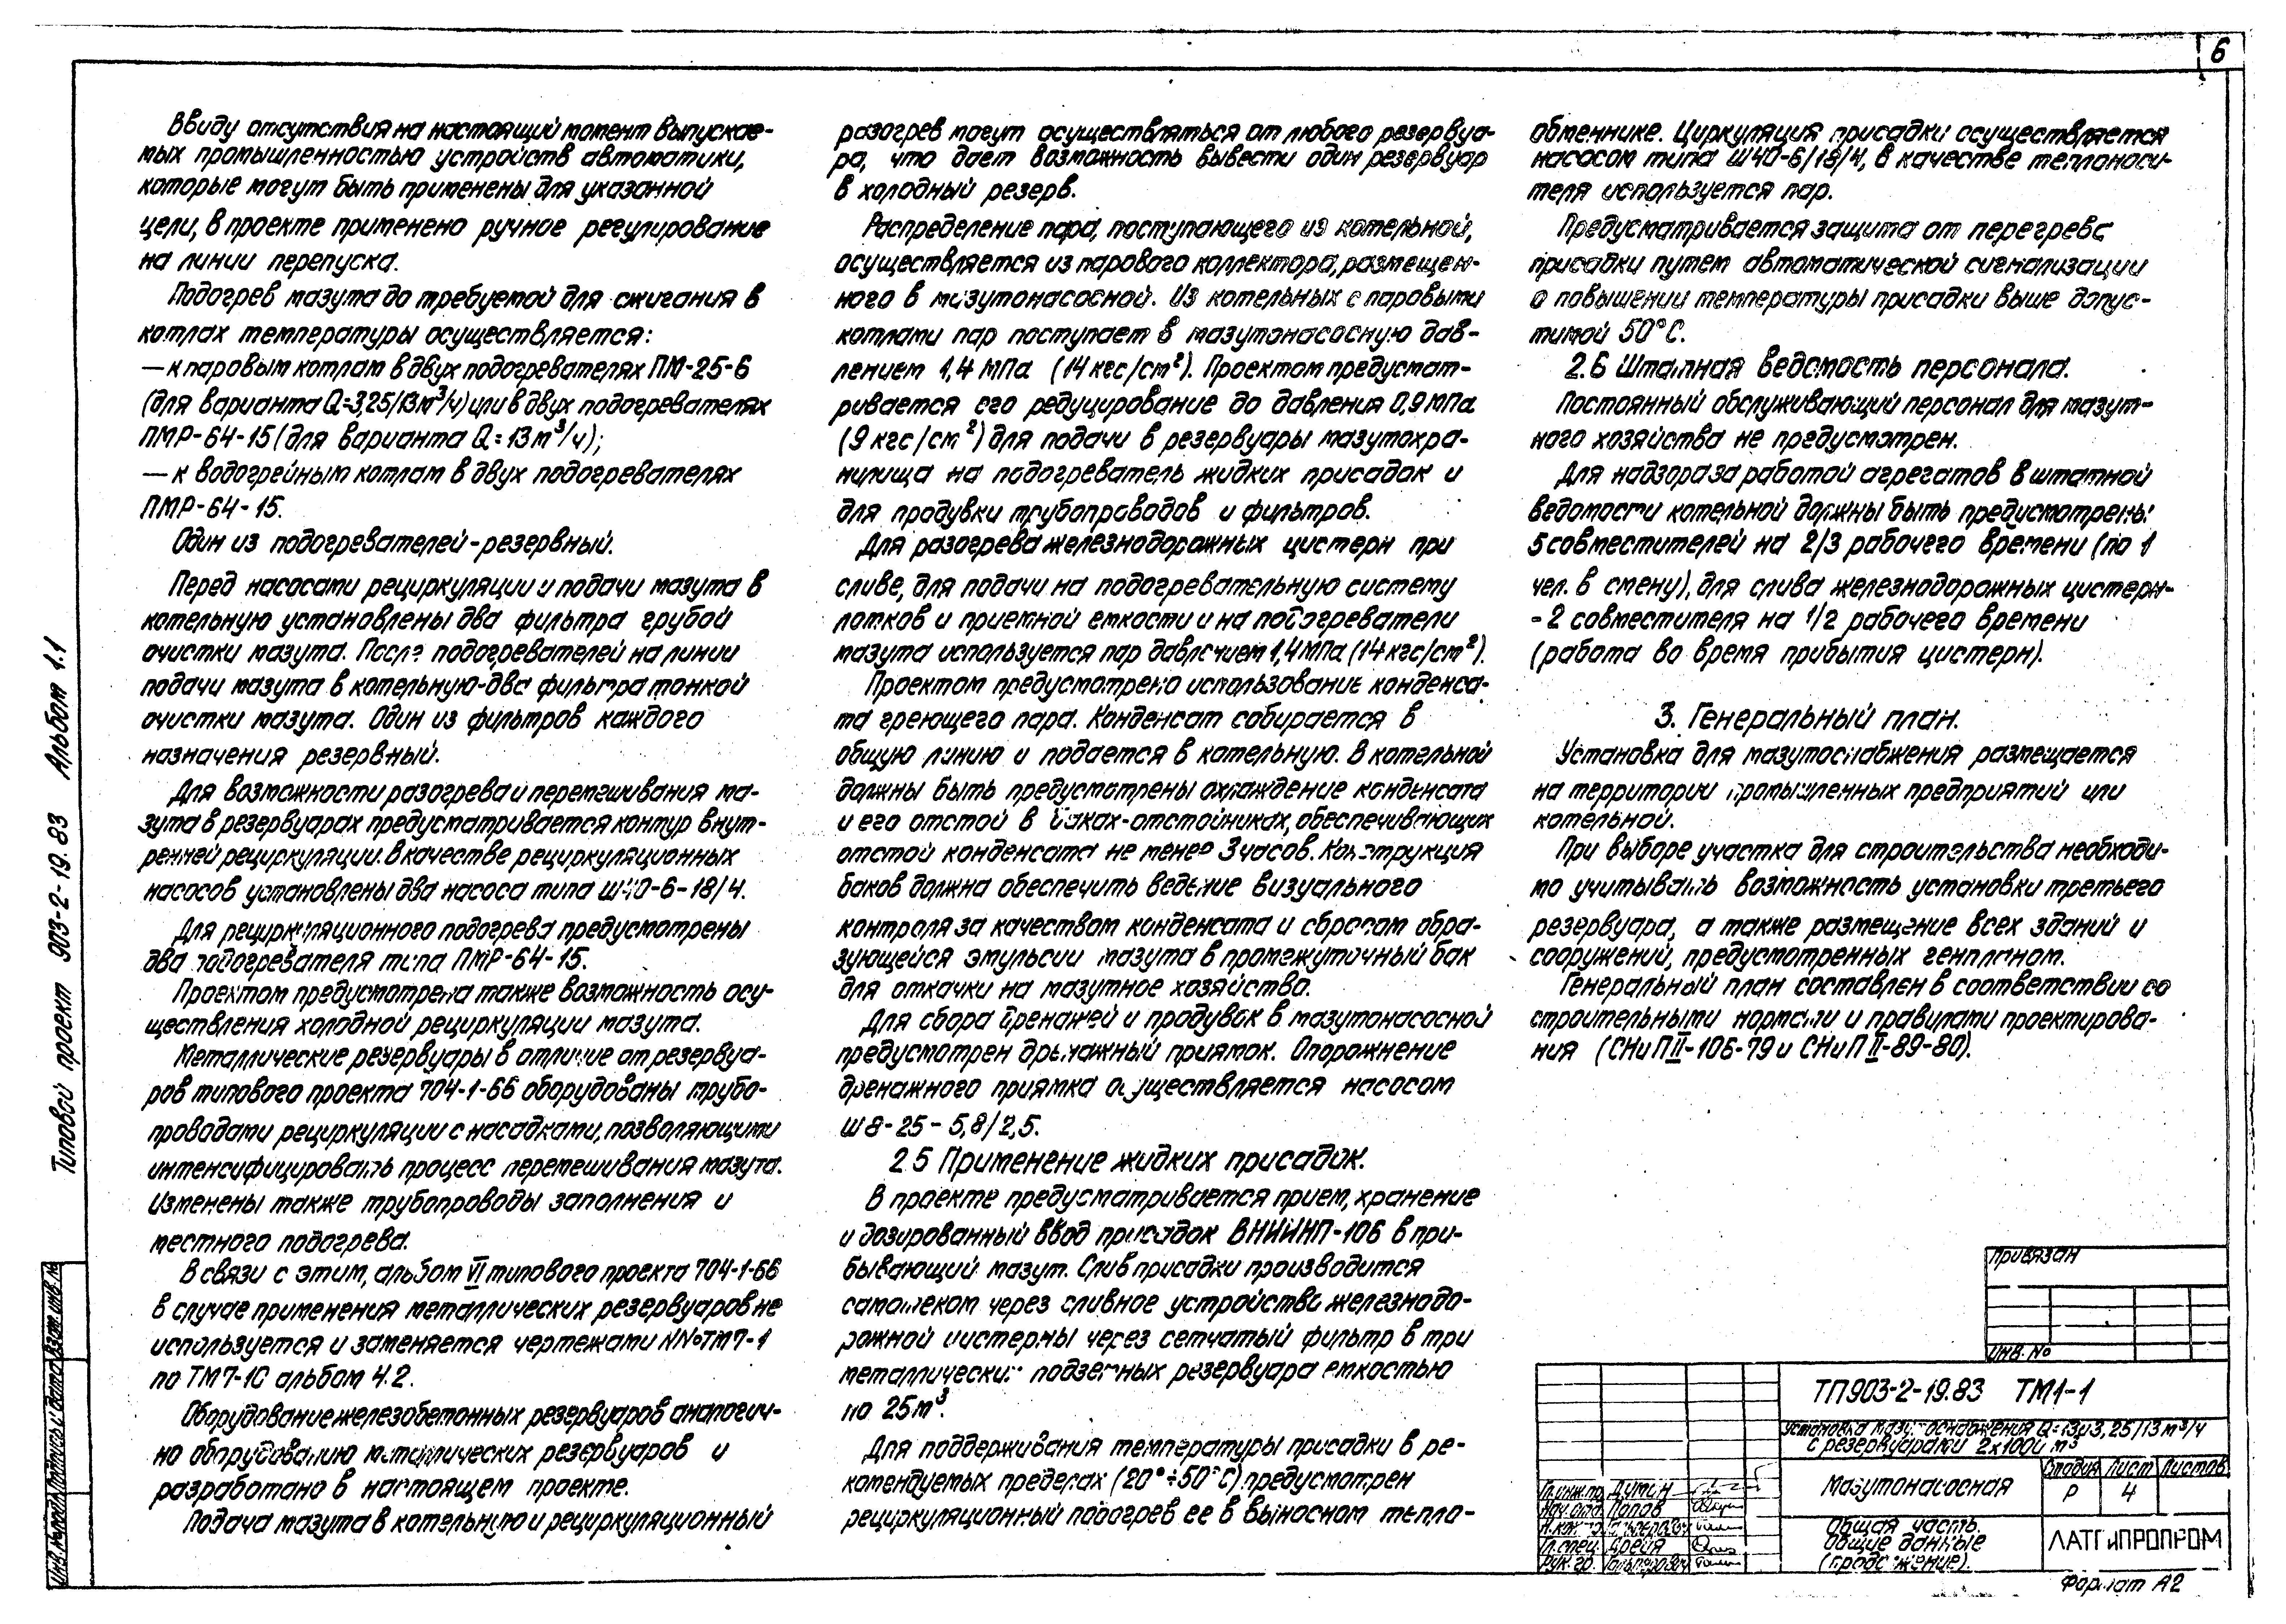 6
Ввиду отсутствия на настоящий момент выпускае-
мых промышленностью устройств автоматики,
которые могут быть применены для указанной
цели, в проекте применено ручное регулирование
на линии перепуска.
Подогрев мазута до требуемой для сжигания в
котлах температуры осуществляется:
— к паровым котлам в двух подогревателях ПМ-25-6
(для варианта Q=3,25/13м³/ч) или в двух подогревателях
ПМР-64-15 (для варианта Q=13м³/ч);
— к водогрейным котлам в двух подогревателях
ПМР-64-15.
Один из подогревателей-резервный.
Перед насосами рециркуляции и подачи мазута в
котельную установлены два фильтра грубой
очистки мазута. После подогревателей на линии
подачи мазута в котельную-два фильтра тонкой
очистки мазута. Один из фильтров каждого
назначения резервный.
Для возможности разогрева и перемешивания ма-
зута в резервуарах предусматривается контур внут-
ренней рециркуляции. В качестве рециркуляционных
насосов установлены два насоса типа Ш40-6-18/4.
Для рециркуляционного подогрева предусмотрены
два подогревателя типа ПМР-64-15.
Проектом предусмотрена также возможность осу-
ществления холодной рециркуляции мазута.
Металлические резервуары в отличие от резервуа-
ров типового проекта 704-1-66 оборудованы трубо-
проводами рециркуляции с насадками, позволяющими
интенсифицировать процесс перемешивания мазута.
Изменены также трубопроводы заполнения и
местного подогрева.
В связи с этим, альбом VI типового проекта 704-1-66
в случае применения металлических резервуаров не
используется и заменяется чертежами NNoТМ7-1
по ТМ7-10 альбом 4.2.
Оборудование железобетонных резервуаров аналогич-
но оборудованию металлических резервуаров и
разработано в настоящем проекте.
Подача мазута в котельную и рециркуляционный
разогрев могут осуществляться от любого резервуа-
ра, что дает возможность вывести один резервуар
в холодный резерв.
Распределение пара, поступающего из котельной,
осуществляется из парового коллектора, размещен-
ного в мазутонасосной. Из котельных с паровыми
котлами пар поступает в мазутонасосную дав-
лением 1,4 МПа (14 кгс/см²). Проектом предусмат-
ривается его редуцирование до давления 0,9 МПа
(9 кгс/см²) для подачи в резервуары мазутохра-
нилища на подогреватель жидких присадок и
для продувки трубопроводов и фильтров.
Для разогрева железнодорожных цистерн при
сливе, для подачи на подогревательную систему
лотков и приемной емкости и на подогреватели
мазута используется пар давлением 1,4 МПа (14 кгс/см²).
Проектом предусмотрено использование конденса-
та греющего пара. Конденсат собирается в
общую линию и подается в котельную. В котельной
должны быть предусмотрены охлаждение конденсата
и его отстой в баках-отстойниках, обеспечивающих
отстой конденсата не менее 3 часов. Конструкция
баков должна обеспечить ведение визуального
контроля за качеством конденсата и сбросом обра-
зующейся эмульсии мазута в промежуточный бак
для откачки на мазутное хозяйство.
Для сбора дренажей и продувок в мазутонасосной
предусмотрен дренажный приямок. Опорожнение
дренажного приямка осуществляется насосом
Ш8-25-5,8/2,5.
2.5 Применение жидких присадок.
В проекте предусматривается прием, хранение
и дозированный ввод присадок ВНИИНП-106 в при-
бывающий мазут. Слив присадки производится
самотеком через сливное устройство железнодо-
рожной цистерны через сетчатый фильтр в три
металлических подземных резервуара емкостью
по 25 м³.
Для поддерживания температуры присадки в ре-
комендуемых пределах (20°÷50°С) предусмотрен
рециркуляционный подогрев ее в выносном тепло-
обменнике. Циркуляция присадки осуществляется
насосом типа Ш40-6/18/4, в качестве теплоноси-
теля используется пар.
Предусматривается защита от перегрева
присадки путем автоматической сигнализации
о повышении температуры присадки выше допус-
тимой 50°С.
2.6 Штатная ведомость персонала.
Постоянный обслуживающий персонал для мазут-
ного хозяйства не предусмотрен.
Для надзора за работой агрегатов в штатной
ведомости котельной должны быть предусмотрены:
5 совместителей на 2/3 рабочего времени (по 1
чел. в смену), для слива железнодорожных цистерн-
- 2 совместителя на 1/2 рабочего времени
(работа во время прибытия цистерн).
3. Генеральный план.
Установка для мазутоснабжения размещается
на территории промышленных предприятий или
котельной.
При выборе участка для строительства необходи-
мо учитывать возможность установки третьего
резервуара, а также размещение всех зданий и
сооружений, предусмотренных генпланом.
Генеральный план составлен в соответствии со
строительными нормами и правилами проектирова-
ния (СНиП II-106-79 и СНиП II-89-80).
Типовой проект 903-2-19.83 Альбом 1.1
Инв.№подл. Подпись и дата Взам.инв.№
Привязан
Инв. №
ТП903-2-19.83 ТМ1-1
Установка мазутоснабжения Q=13и3,25/13м³/ч
с резервуарами 2х1000 м³
Мазутонасосная
Стадия Лист Листов
Р 4
Общая часть.
Общие данные
(продолжение).
ЛАТГИПРОПРОМ
Гл.инж.пр. Дутин
Нач.отд. Попов
Н.контр. Гальперович
Гл.спец. Дрейя
Рук.гр. Гальперович
Формат А2